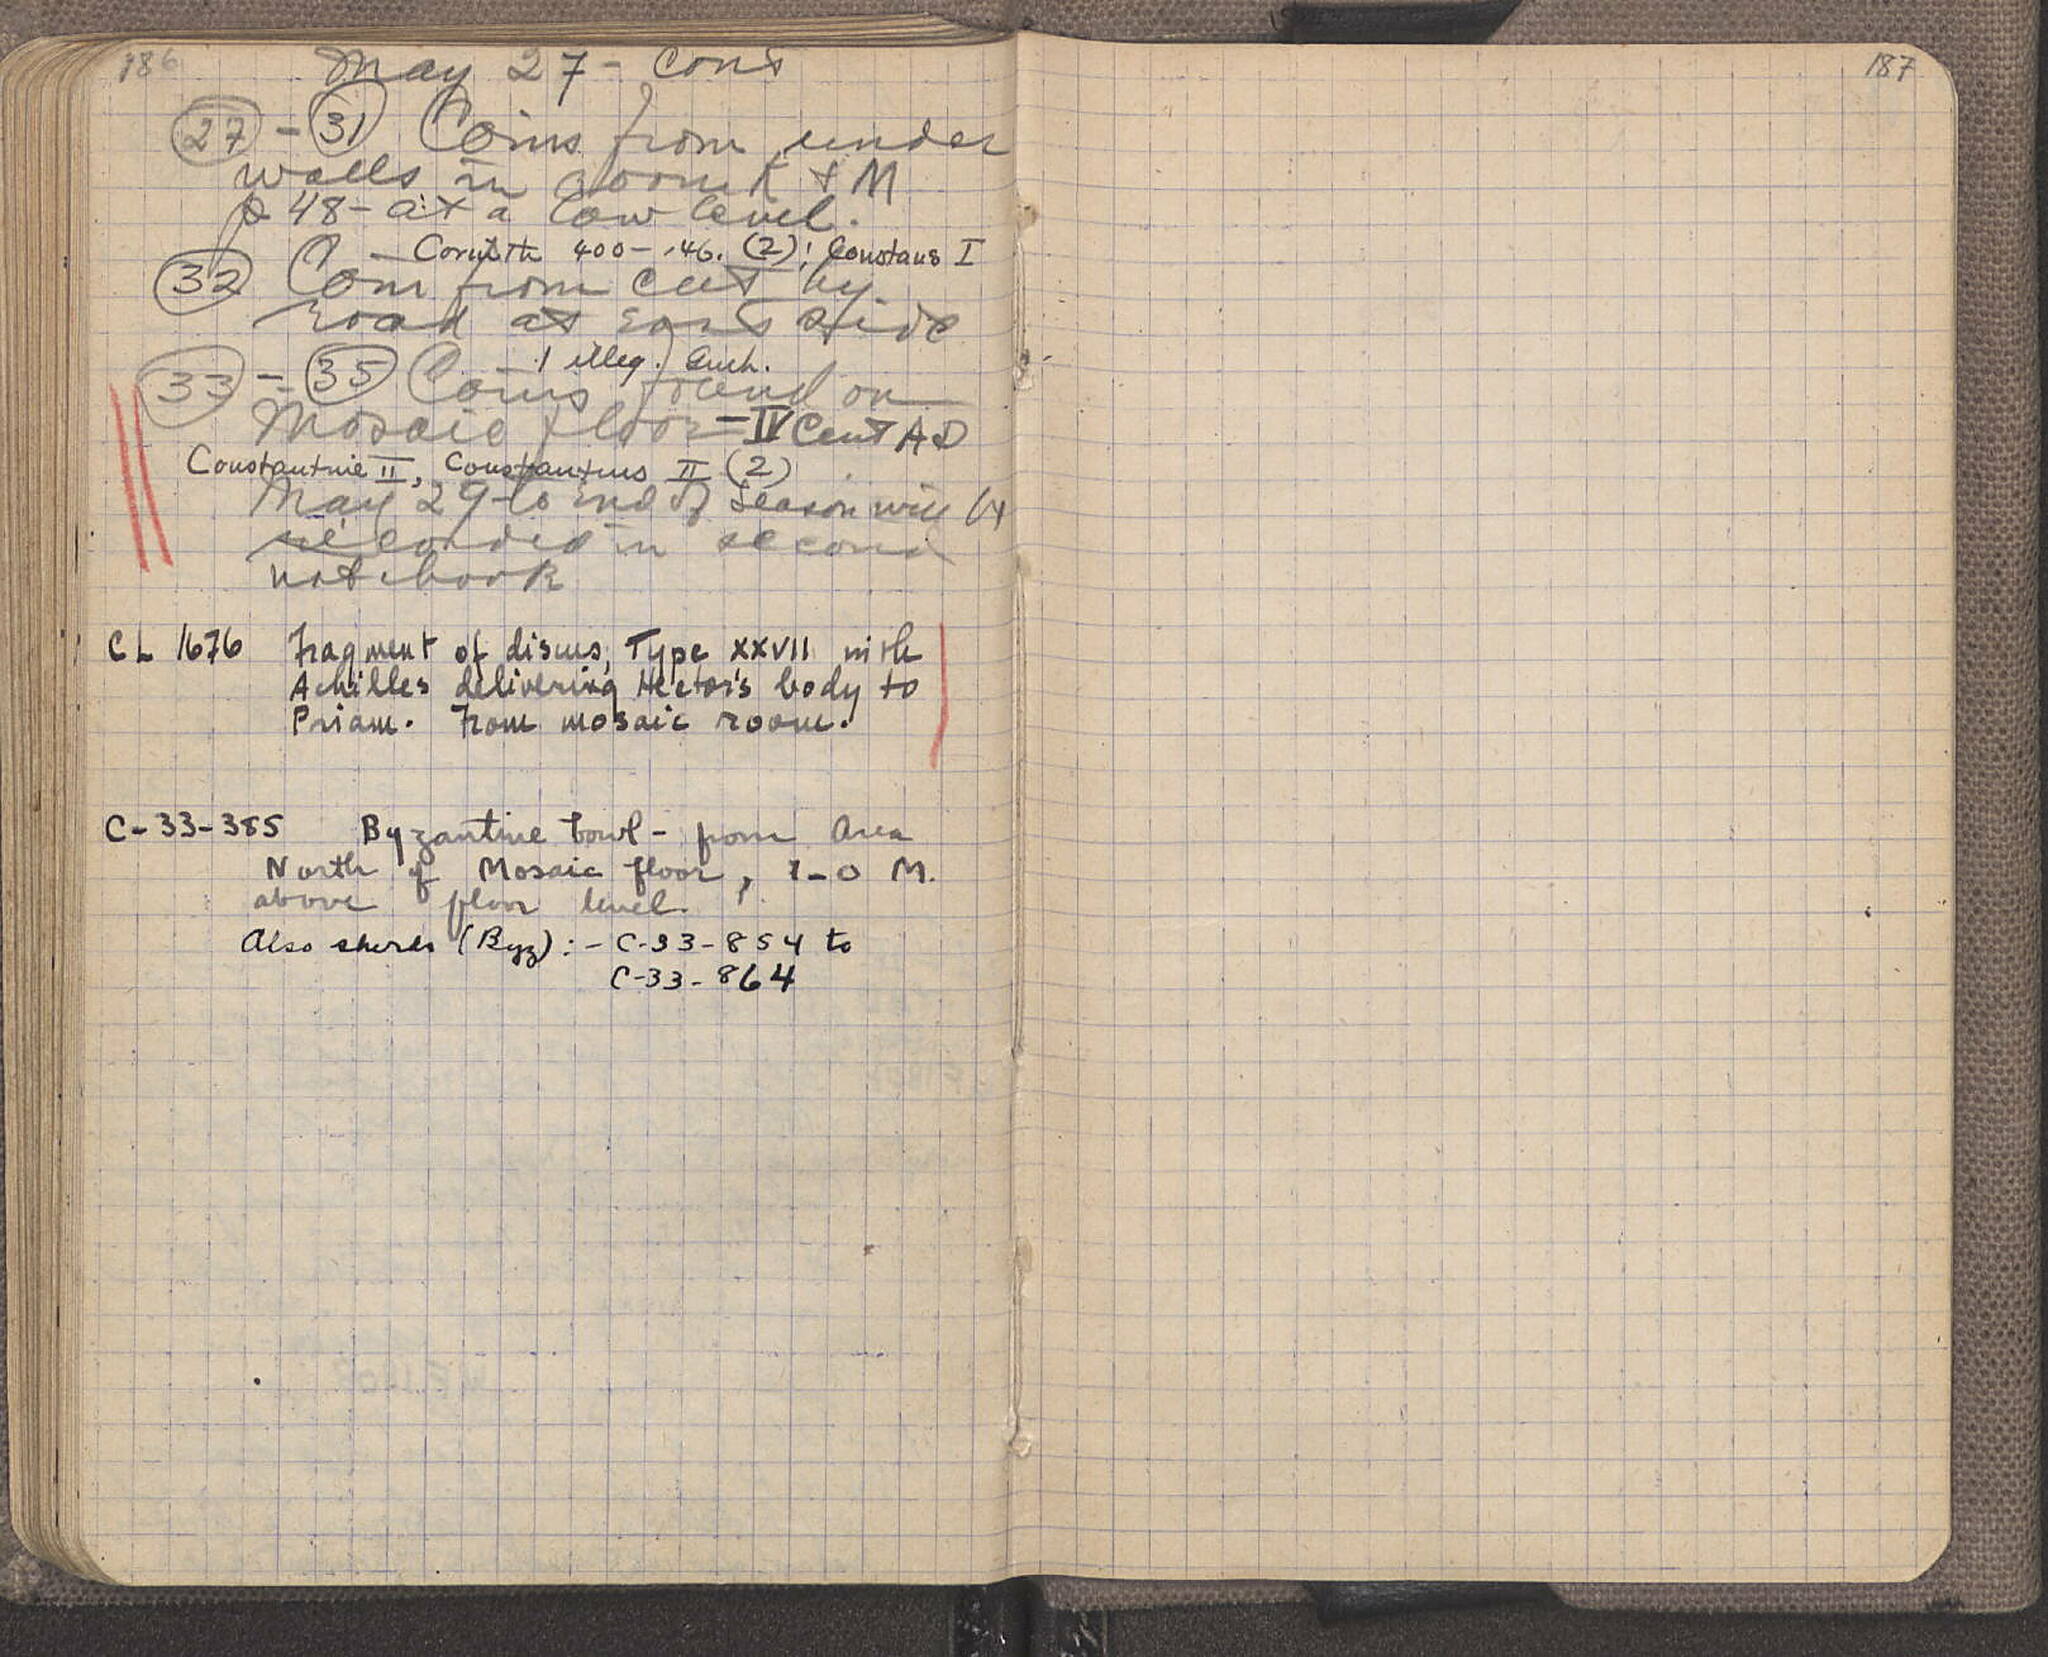 186
May 27 - cont
27 - 31 Coins from under
walls in room K + M
p 48 - at a low level.
Corinth 400-146. (2); Constans I
32 Coin from cut by
road at east side
1 illeg.
33 - 35 Coins found on
Mosaic floor - IV Cent AD
Constantine II, Constantius II (2)
May 29 to end of season will be
recorded in second
notebook
CL 1676 Fragment of discus, Type XXVII with
Achilles delivering Hector's body to
Priam. From mosaic room.
C-33-385 Byzantine bowl - from Area
North of Mosaic floor, 1-0 M.
above floor level.
Also sherds (Byz): - C-33-854 to
C-33-864
187